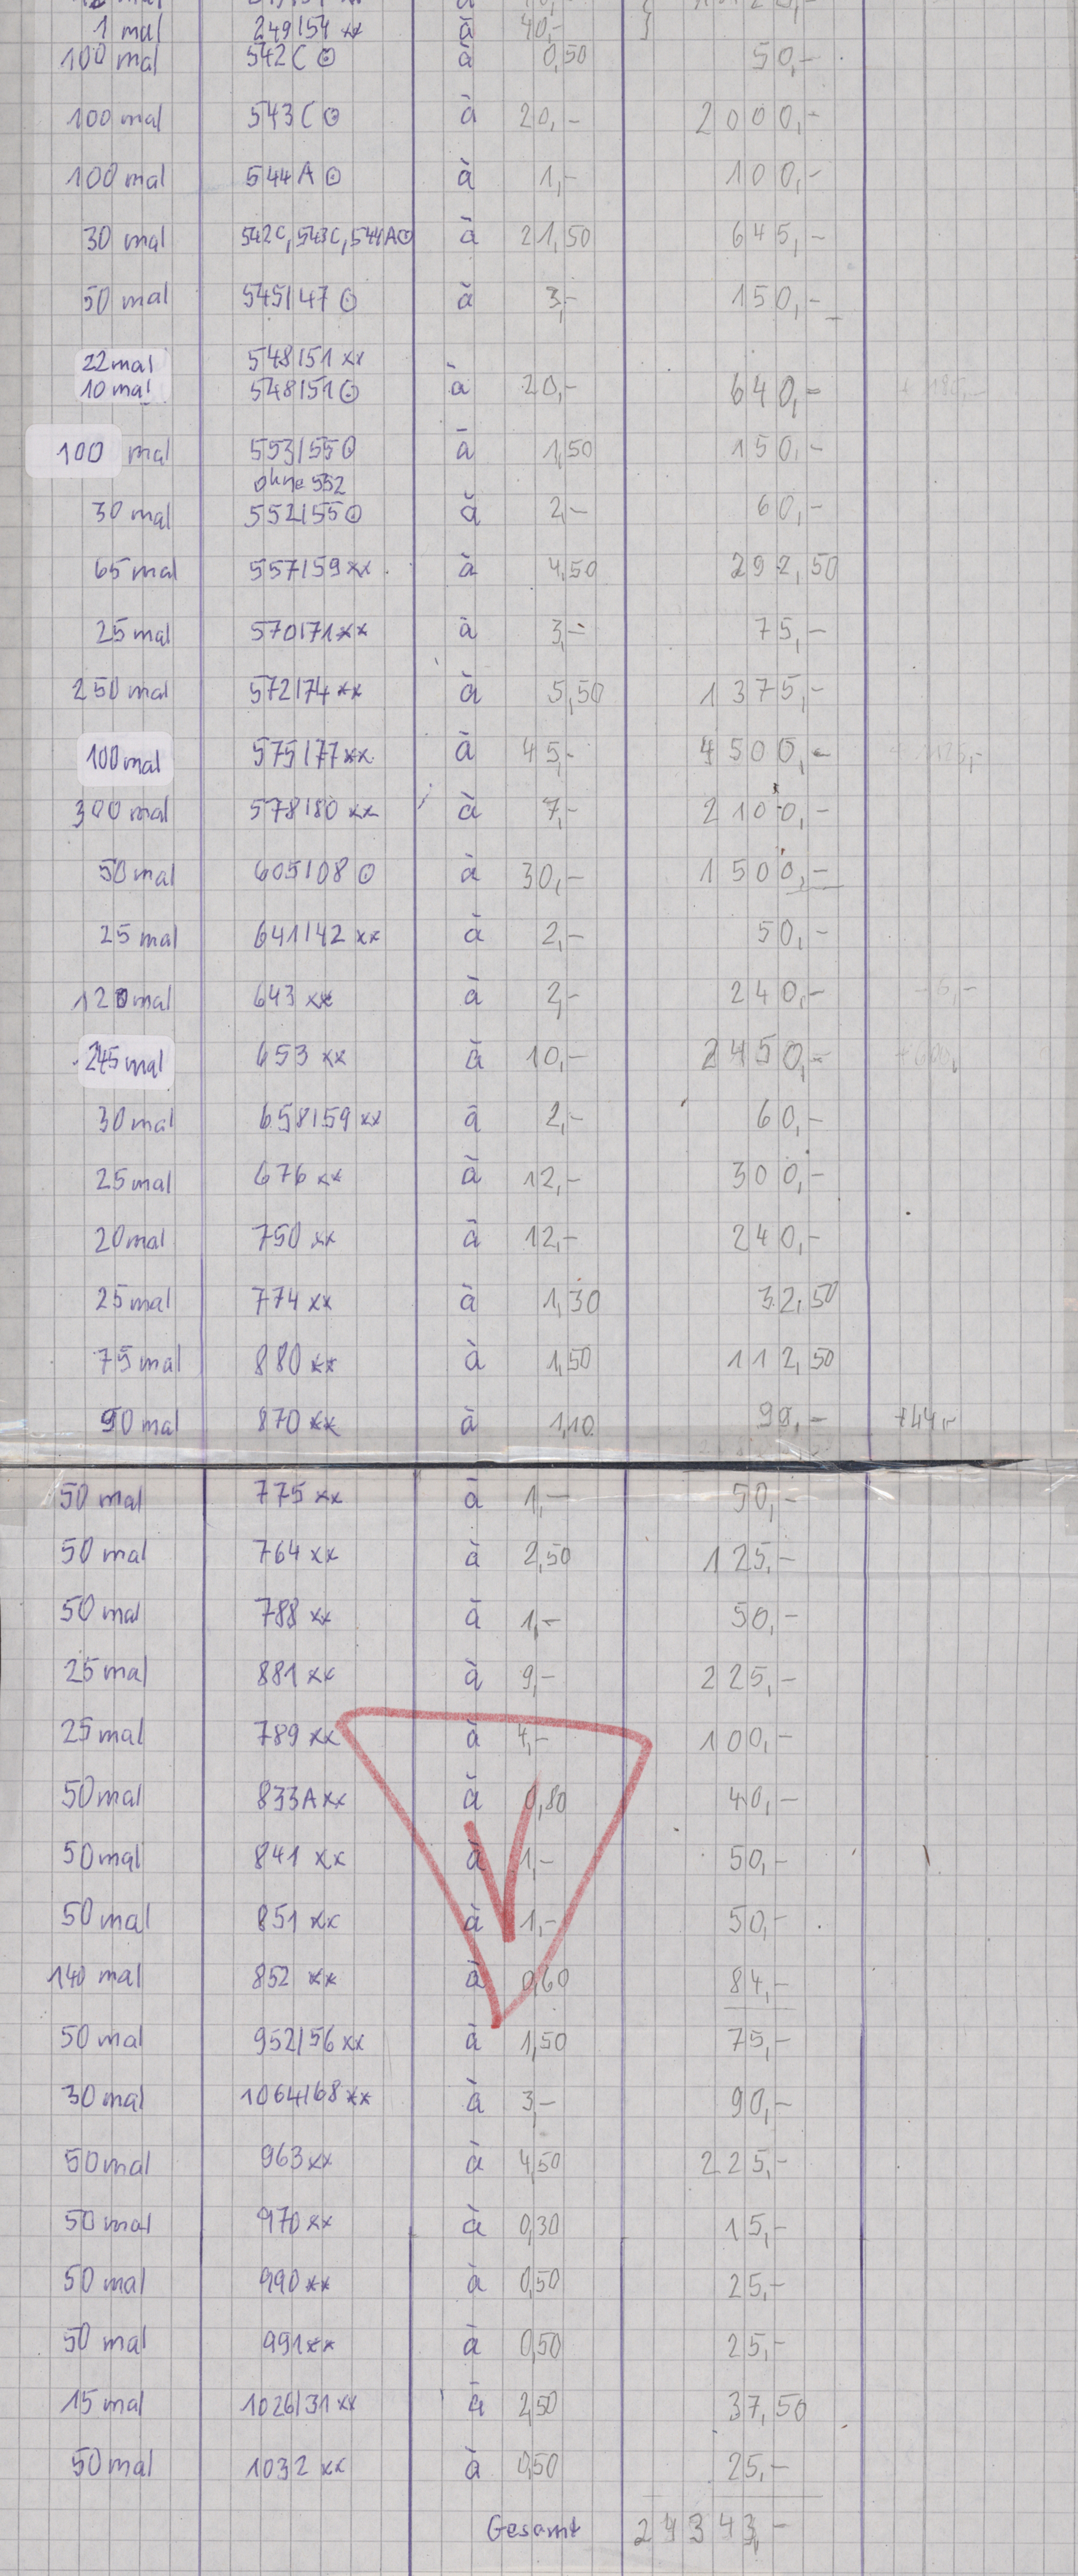 1 mal 249/54 xx à 40,-
100 mal 542C ⊙ à 0,50 50,-
100 mal 543C ⊙ à 20,- 2000,-
100 mal 544A ⊙ à 1,- 100,-
30 mal 542C, 543C, 544A⊙ à 21,50 645,-
50 mal 545/47 ⊙ à 3,- 150,-
22 mal 548/51 xx
10 mal 548/51 ⊙ à 20,- 640,-
100 mal 553/55⊙ à 1,50 150,-
ohne 552
30 mal 552/55⊙ à 2,- 60,-
65 mal 557/59 xx à 4,50 292,50
25 mal 570/71 xx à 3,- 75,-
250 mal 572/74 xx à 5,50 1375,-
100 mal 575/77 xx à 45,- 4500,-
300 mal 578/80 xx à 7,- 2100,-
50 mal 605/08 ⊙ à 30,- 1500,-
25 mal 641/42 xx à 2,- 50,-
120 mal 643 xx à 2,- 240,-
245 mal 653 xx à 10,- 2450,-
30 mal 658/59 xx à 2,- 60,-
25 mal 676 xx à 12,- 300,-
20 mal 750 xx à 12,- 240,-
25 mal 774 xx à 1,30 32,50
75 mal 880 xx à 1,50 112,50
90 mal 870 xx à 1,10 99,- +44,-
50 mal 775 xx à 1,- 50,-
50 mal 764 xx à 2,50 125,-
50 mal 788 xx à 1,- 50,-
25 mal 881 xx à 9,- 225,-
25 mal 789 xx à 4,- 100,-
50 mal 833A xx à 0,80 40,-
50 mal 841 xx à 1,- 50,-
50 mal 851 xx à 1,- 50,-
140 mal 852 xx à 0,60 84,-
50 mal 952/56 xx à 1,50 75,-
30 mal 1064/68 xx à 3,- 90,-
50 mal 963 xx à 4,50 225,-
50 mal 970 xx à 0,30 15,-
50 mal 990 xx à 0,50 25,-
50 mal 991 xx à 0,50 25,-
15 mal 1026/31 xx à 2,50 37,50
50 mal 1032 xx à 0,50 25,-
Gesamt 24343,-